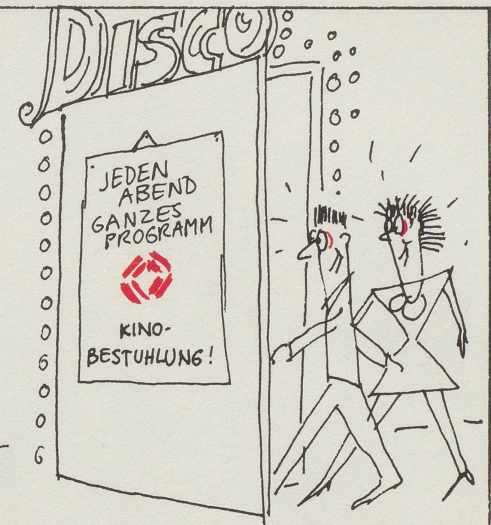 DISCO
JEDEN
ABEND
GANZES
PROGRAMM
KINO-
BESTUHLUNG!